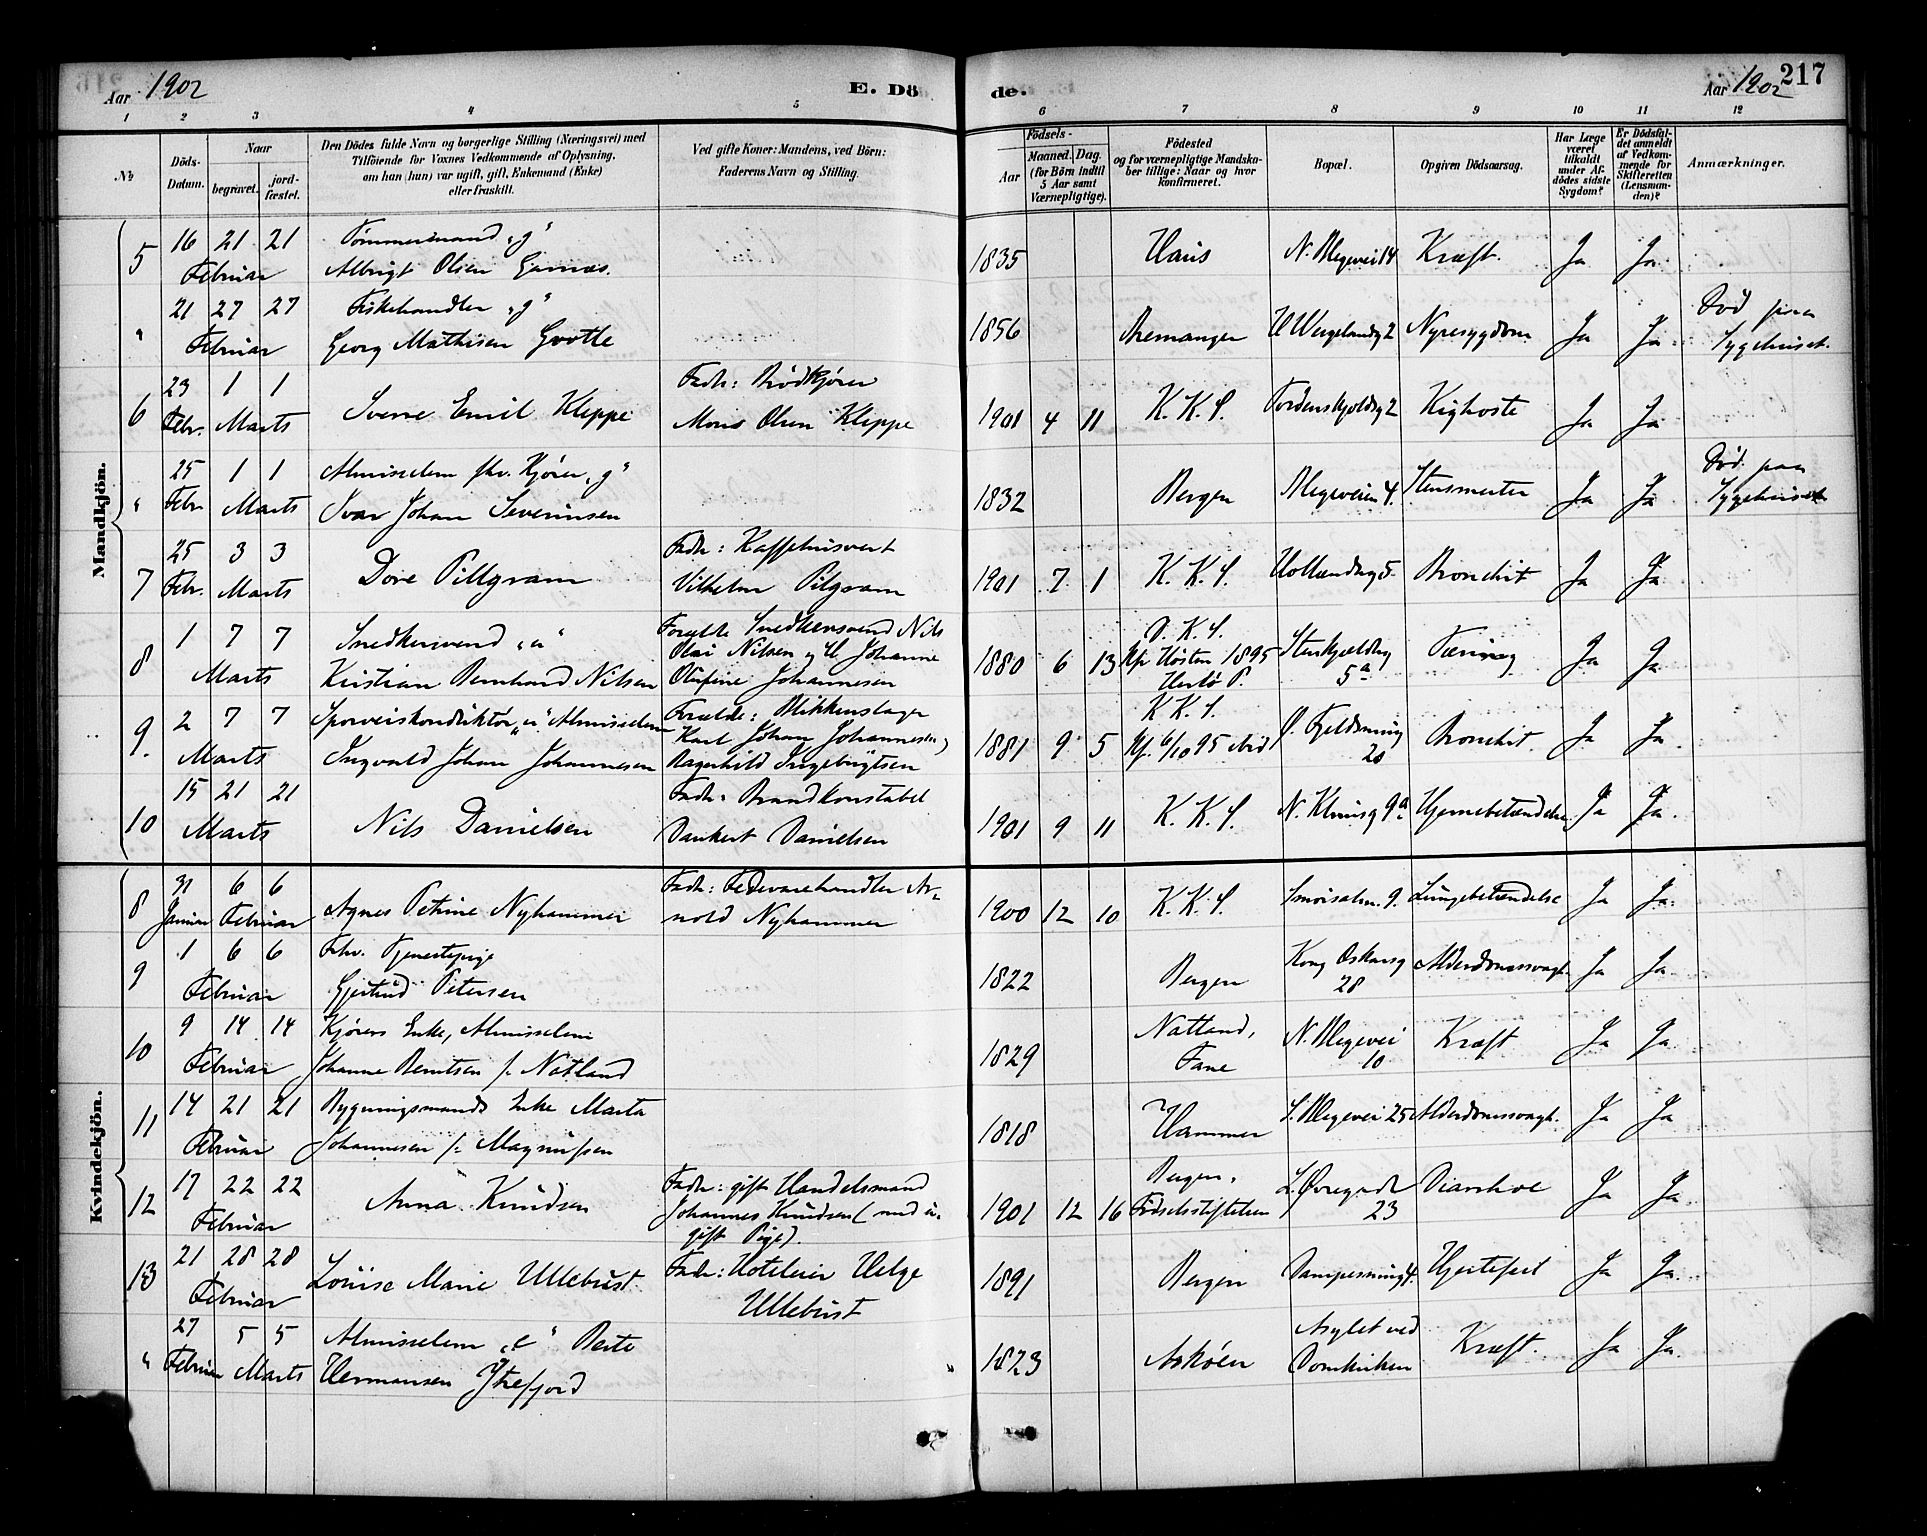 Aar 1902
E. Döde.
Aar 1902
217
1 2 3 4 5 6 7 8 9 10 11 12
No
Döds-Datum.
Naar
begravet.
jordfæstet.
Den Dödes fulde Navn og borgerlige Stilling (Næringsvei) med
Tilföiende for Voxnes Vedkommende af Oplysning,
om han (hun) var ugift, gift, Enkemand (Enke)
eller fraskilt.
Ved gifte Koner: Mandens, ved Börn:
Faderens Navn og Stilling.
Födsels-
Aar
Maaned. Dag.
(for Börn indtil
5 Aar samt
Værnepligtige).
Födested
og for værnepligtige Mandskaber
tillige: Naar og hvor
konfirmeret.
Bopæl.
Opgiven Dödsaarsag.
Har Læge
været
tilkaldt
under Afdödes
sidste
Sygdom?
Er Dödsfaldet
anmeldt
af Vedkommende
for
Skifteretten
(Lensmanden)?
Anmærkninger.
Mandkjön.
5 16 21 21 Tömmermand "g"
Februar Albrigt Olsen Garnæs. 1835 Haus N. Blegevei 14 Kræft. Ja Ja
" 21 27 27 Fiskehandler "g"
Februar Georg Mathisen Grotle 1856 Bremanger H Wergelandsg 2 Nyresygdom Ja Ja Död paa
Sygehuset.
6 23 1 1 Fader: Brödkjörer
Febr. Marts Sverre Emil Kleppe Mons Olsen Kleppe 1901 4 11 K. K. S. Tordenskjoldsg 2 Kighoste Ja Ja
" 25 1 1 Almisselem fhv. Kjörer "g"
Febr. Marts Ivar Johan Severinsen 1832 Bergen Blegeveien 4. Stensmerter Ja Ja Död paa
Sygehuset
7 25 3 3 Fader: Kaffehusvert
Febr. Marts Dore Pillgram Vilhelm Pilgram 1901 7 1 K. K. S. Hollændrg 5. Bronchit Ja Ja
8 1 7 7 Snedkersvend "u" Forældre Snedkersvend Nils
Marts Kristian Bernhard Nilsen Olai Nilsen og H Johanne
Olufine Johannesen 1880 6 13 D. K. S.
Kf Hösten 1895
Herlö P. Stenkjældrg
5a Tæring Ja Ja
9. 2 7 7 Sporveiskonduktör "u" Almisselem Forældre: Blikkenslager
Marts Ingvald Johan Johannesen Karl Johan Johannesen,
Ragnhild Ingebrigtsen 1881 9 5 K K. S.
Kf. 6/10 95 ibid Ö. Fjeldsmug
20 Bronchit. Ja Ja
10 15 21 21 Fader: Brandkonstabel
Marts Nils Danielsen Dankert Danielsen 1901 9 11 K. K. S. N. Klausg 9a Hjernebetændelse Ja Ja
Kvindekjön.
8 31 6 6 Fader: Fedevarehandler Ar-
Januar Februar Agnes Petrine Nyhammer nold Nyhammer 1900 12 10 K. K. S. Smörsalm. 9. Lungebetændelse Ja Ja
9 1 6 6 Fhv. Tjenestepige
Februar Gjertrud Petersen 1822 Bergen Kong Oskarsg
28 Alderdomssvagh. Ja Ja
10 9 14 14 Kjörers Enke, Almisselem
Februar Johanne Berntsen f. Natland 1829 Natland,
Fane N. Blegevei
10 Kræft Ja Ja
11 14 21 21 Bygningsmands Enke Marta
Februar Johannesen f. Magnussen 1818 Hammer S. Blegevei 25 Alderdomssvagh. Ja Ja
12 17 22 22 Fader: gift Handelsmand
Februar Anna Knudsen Johannes Knudsen (med u-
gift Pige). 1901 12 16 Bergen,
Födselsstiftelsen L. Övregade
23 Diarrhoe Ja Ja
13 21 28 28 Fader: Hoteleier Helge
Februar Louise Marie Ullebust Ullebust 1891 Bergen Dampesmug 4. Hjertefeil Ja Ja
" 27 5 5 Almisselem "e" Berte
Februar Marts Hermansen Ytrefjord 1823 Asköen Asylet ved
Domkirken Kræft. Ja Ja